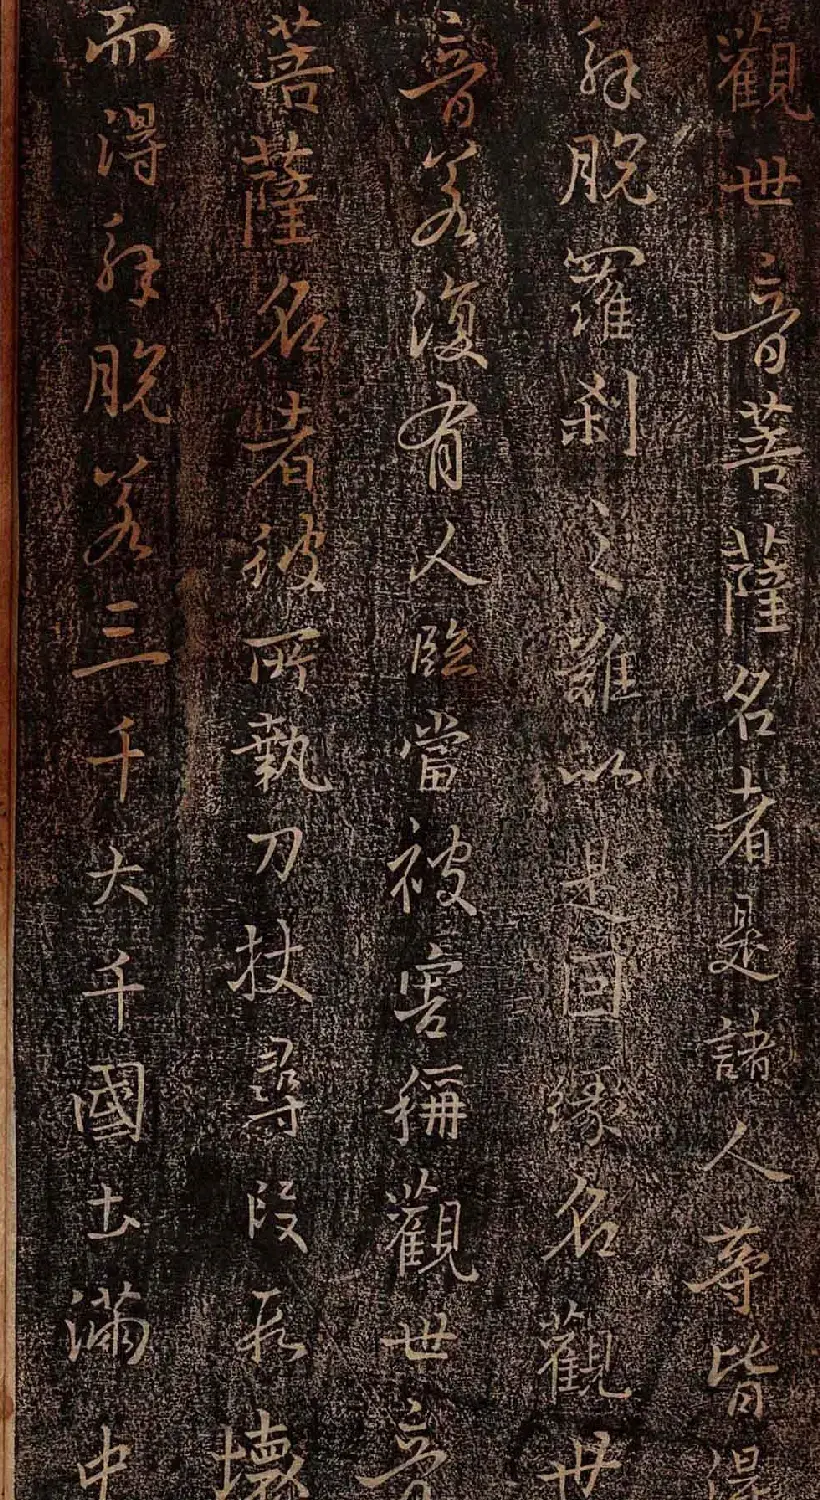 觀世音菩薩名者是諸人等皆得
解脫羅刹之難以是因緣名觀世
音若復有人臨當被害稱觀世音
菩薩名者彼所執刀杖尋段段壞
而得解脫若三千大千國土滿中